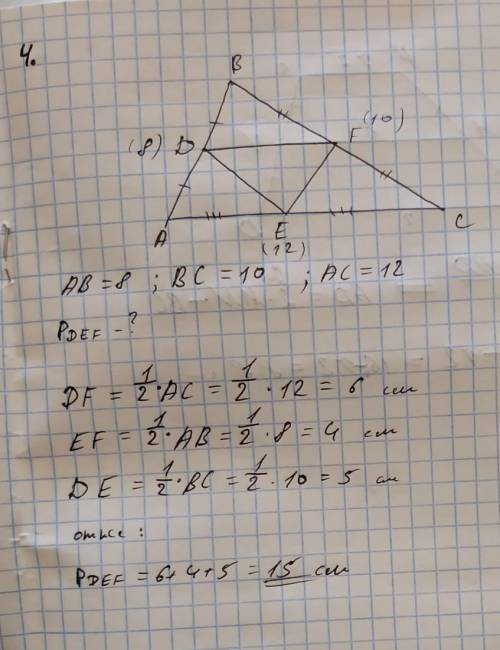 4.
B
(8) D
F (10)
A
E
(12)
C
AB = 8 ; BC = 10 ; AC = 12
P_DEF - ?
DF = 1/2 · AC = 1/2 · 12 = 6 см
EF = 1/2 · AB = 1/2 · 8 = 4 см
DE = 1/2 · BC = 1/2 · 10 = 5 см
:
P_DEF = 6+4+5 = 15 см